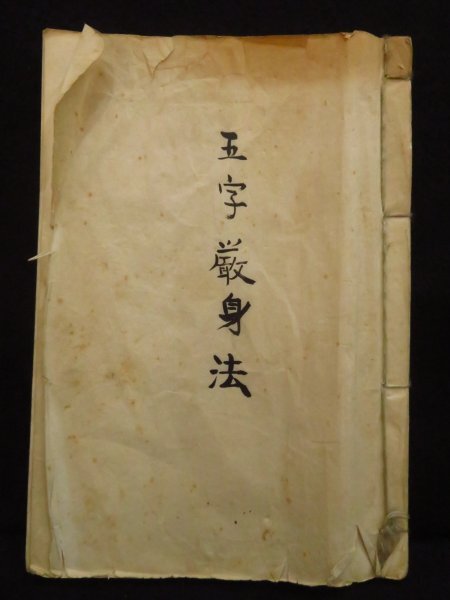 五字厳身法